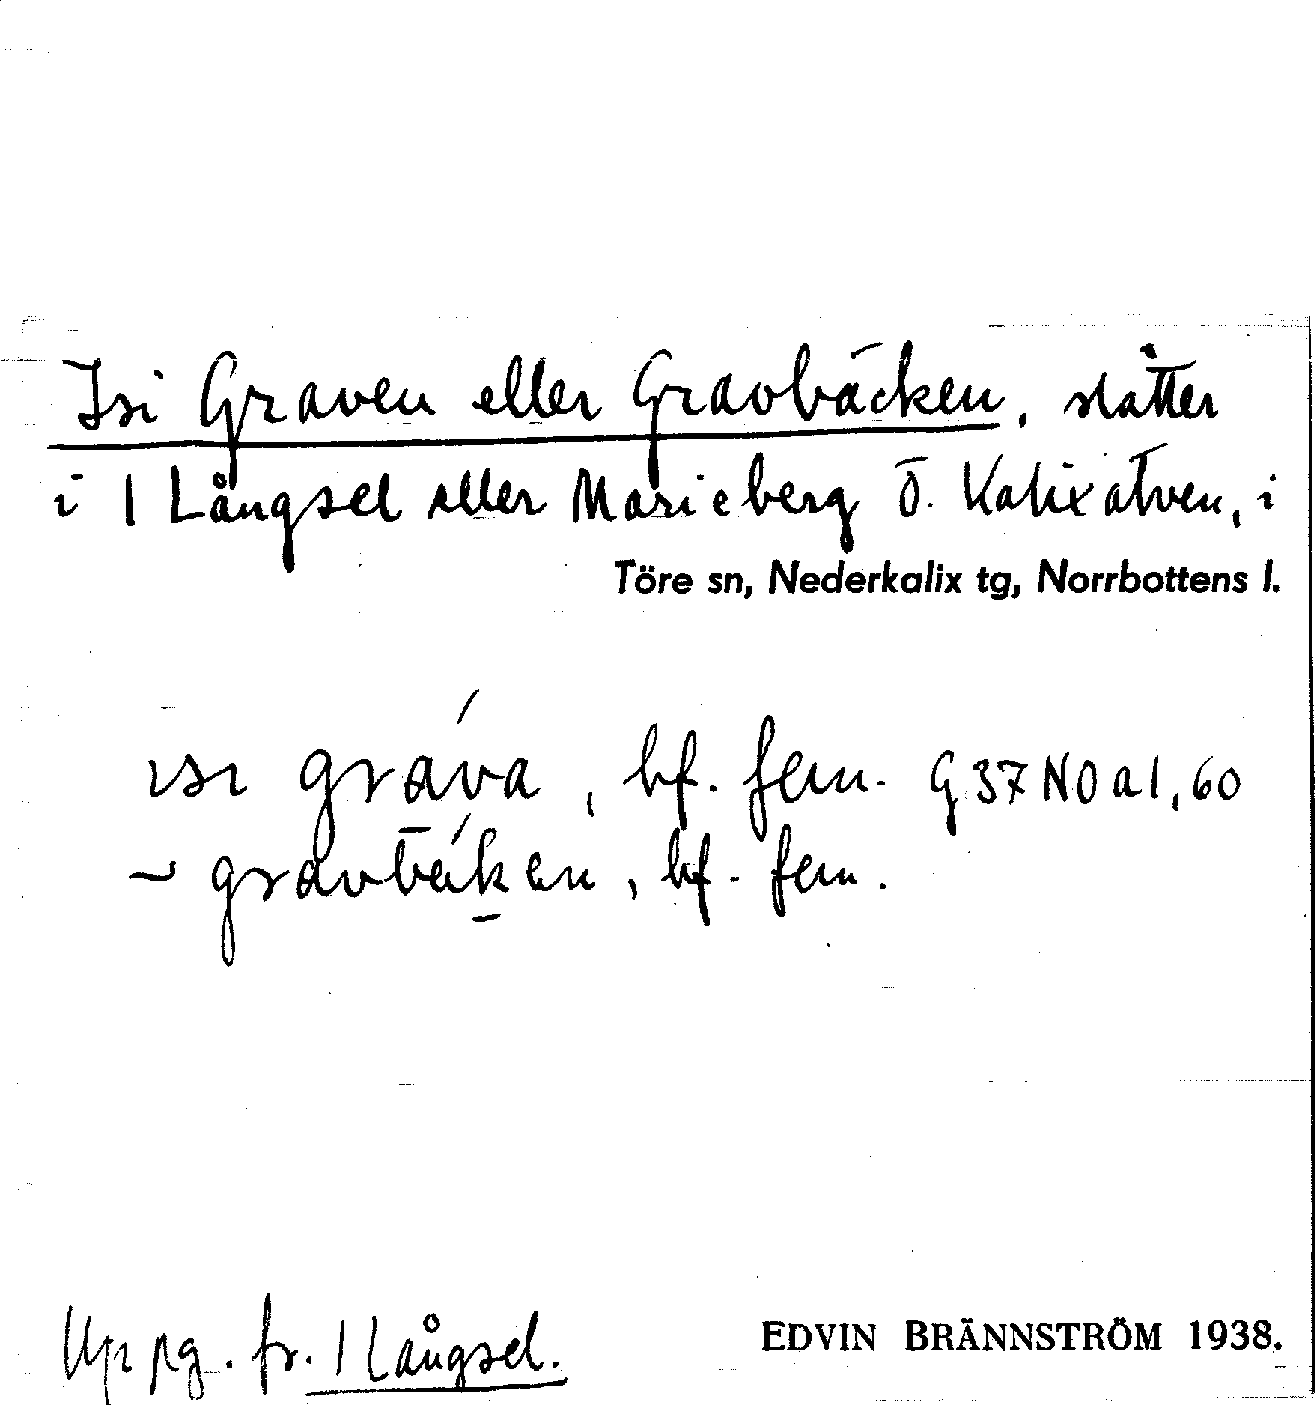 Isi Graven eller Gravbäcken, slåtter
i 1 Långsel eller Marieberg Ö. Kalixälven, i
Töre sn, Nederkalix tg, Norrbottens l.
ısı gráva, bf. fem. G 37 NO a1, 60
~ gravbä́ḵen, bf. fem.
Uppg. fr. 1 Långsel.
EDVIN BRÄNNSTRÖM 1938.